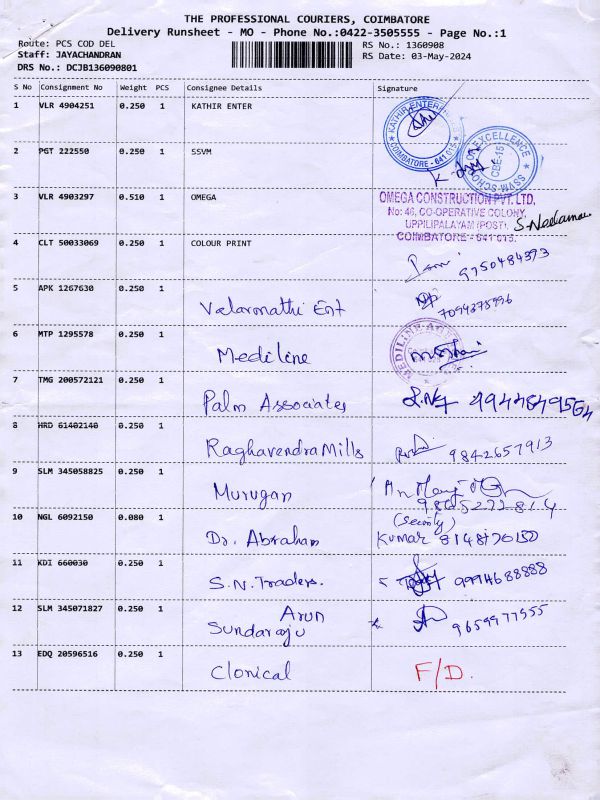 THE PROFESSIONAL COURIERS, COIMBATORE
Delivery Runsheet - MO - Phone No.:0422-3505555 - Page No.:1
Route: PCS COD DEL
RS No.: 1360908
Staff: JAYACHANDRAN
RS Date: 03-May-2024
DRS No.: DCJB136090801
S No Consignment No Weight PCS Consignee Details Signature
1 VLR 4904251 0.250 1 KATHIR ENTER
KATHIR ENTER
COIMBATORE - 641 015
2 PGT 222550 0.250 1 SSVM
OF EXCELLENCE
CBE-15
SSVM SCHO
3 VLR 4903297 0.510 1 OMEGA
OMEGA CONSTRUCTION PVT. LTD,
No: 46, CO-OPERATIVE COLONY,
UPPILIPALAYAM (POST),
COIMBATORE - 641 015.
4 CLT 50033069 0.250 1 COLOUR PRINT
9750484393
5 APK 1267630 0.250 1 Valarmathi Ent
7094378996
6 MTP 1295578 0.250 1 Mediline
MEDILINE AGE
7 TMG 200572121 0.250 1 Palm Associates
9944849564
8 HRD 61402140 0.250 1 Raghavendra Mills
9842657913
9 SLM 345058825 0.250 1 Murugan
9805272814
10 NGL 6092150 0.080 1 Dr. Abraham
(Security)
Kumar 8148170150
11 KDI 660030 0.250 1 S.N. Traders.
9994688888
12 SLM 345071827 0.250 1 Arun
Sundaraju
9659977555
13 EDQ 20596516 0.250 1 Clonical F/D.